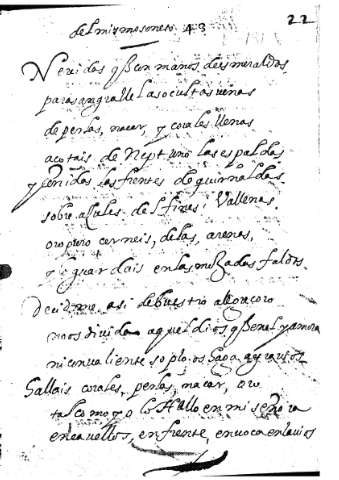 22
del mismo soneto 43
Neridas q̃ con manos de esmeraldas
para sangralle las ocultas venas
de perlas, nacar, y corales llenas
açotais de Neptuno las espaldas
y ceñidas las frentes de guirnaldas
sobre açules delfines i Vallenas
oro puro cerneis, de las, arenas,
y guardais en las mojadas faldas
Decidme, asi de buestro alegre coro
no os divida aquel dios q̃
ni con valiente soplo os haga agravios
hallais corales, perlas, nacar, oro
tal como yo lo Hallo en mi señora
en cavellos, en frente, en voca en lavios